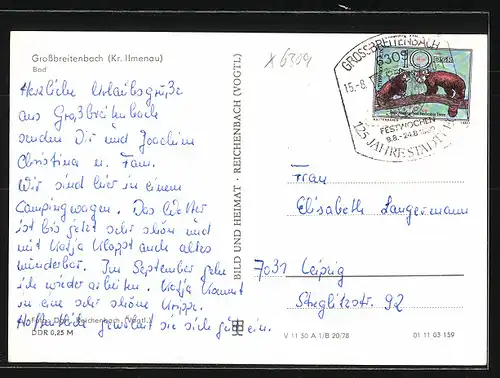 Großbreitenbach (Kr. Ilmenau)
Bad
Herzliche Urlaubsgrüße
aus Großbreitenbach
senden Dir und Joachim
Christina u. Fam.
Wir sind hier in einem
Campingwagen. Das Wetter
ist bis jetzt sehr schön und
mit Katja klappt auch alles
wunderbar. Im September gehe
ich wieder arbeiten. Katja kommt
in eine sehr schöne Krippe.
Hoffentlich gewöhnt sie sich gut ein.
Reichenbach (Vogtl.)
DDR 0,25 M
BILD UND HEIMAT · REICHENBACH (VOGTL)
X 6309
GROSSBREITENBACH
6309
15.-8.
10
DDR
FESTWOCHEN
9.8.-24.8.1980
125 JAHRE STADT
Frau
Elisabeth Langermann
7031 Leipzig
Steglitzstr. 92
V 11 50 A 1/B 20/78
01 11 03 159